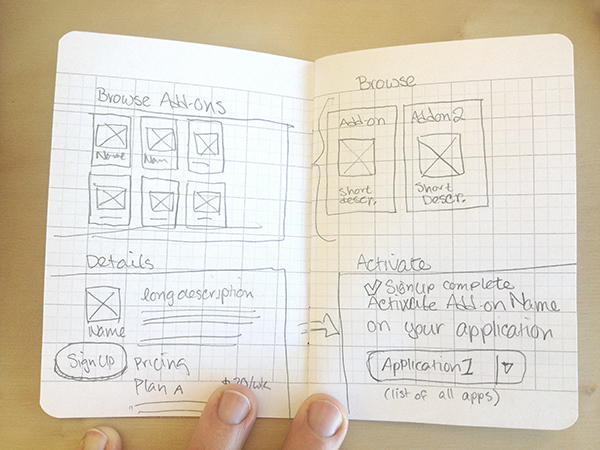 Browse Add-ons
Name
Nam
Details
long description
Name
Sign Up
Pricing
Plan A
Browse
Add-on
Addon 2
Short
descr.
Short
Descr.
Activate
Signup complete
Activate Add-on Name
on your application
Application 1
(list of all apps)